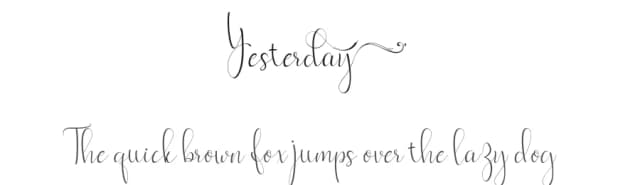 Yesterday
The quick brown fox jumps over the lazy dog